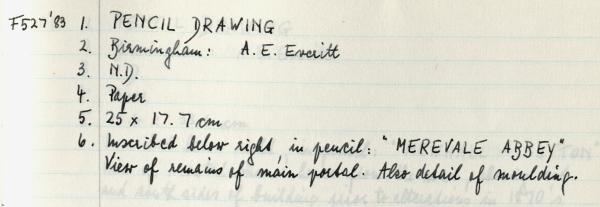 F527'83 1. PENCIL DRAWING
2. Birmingham: A. E. Everitt
3. N.D.
4. Paper
5. 25 x 17.7 cm
6. Inscribed below right, in pencil: "MEREVALE ABBEY"
View of remains of main portal. Also detail of moulding.